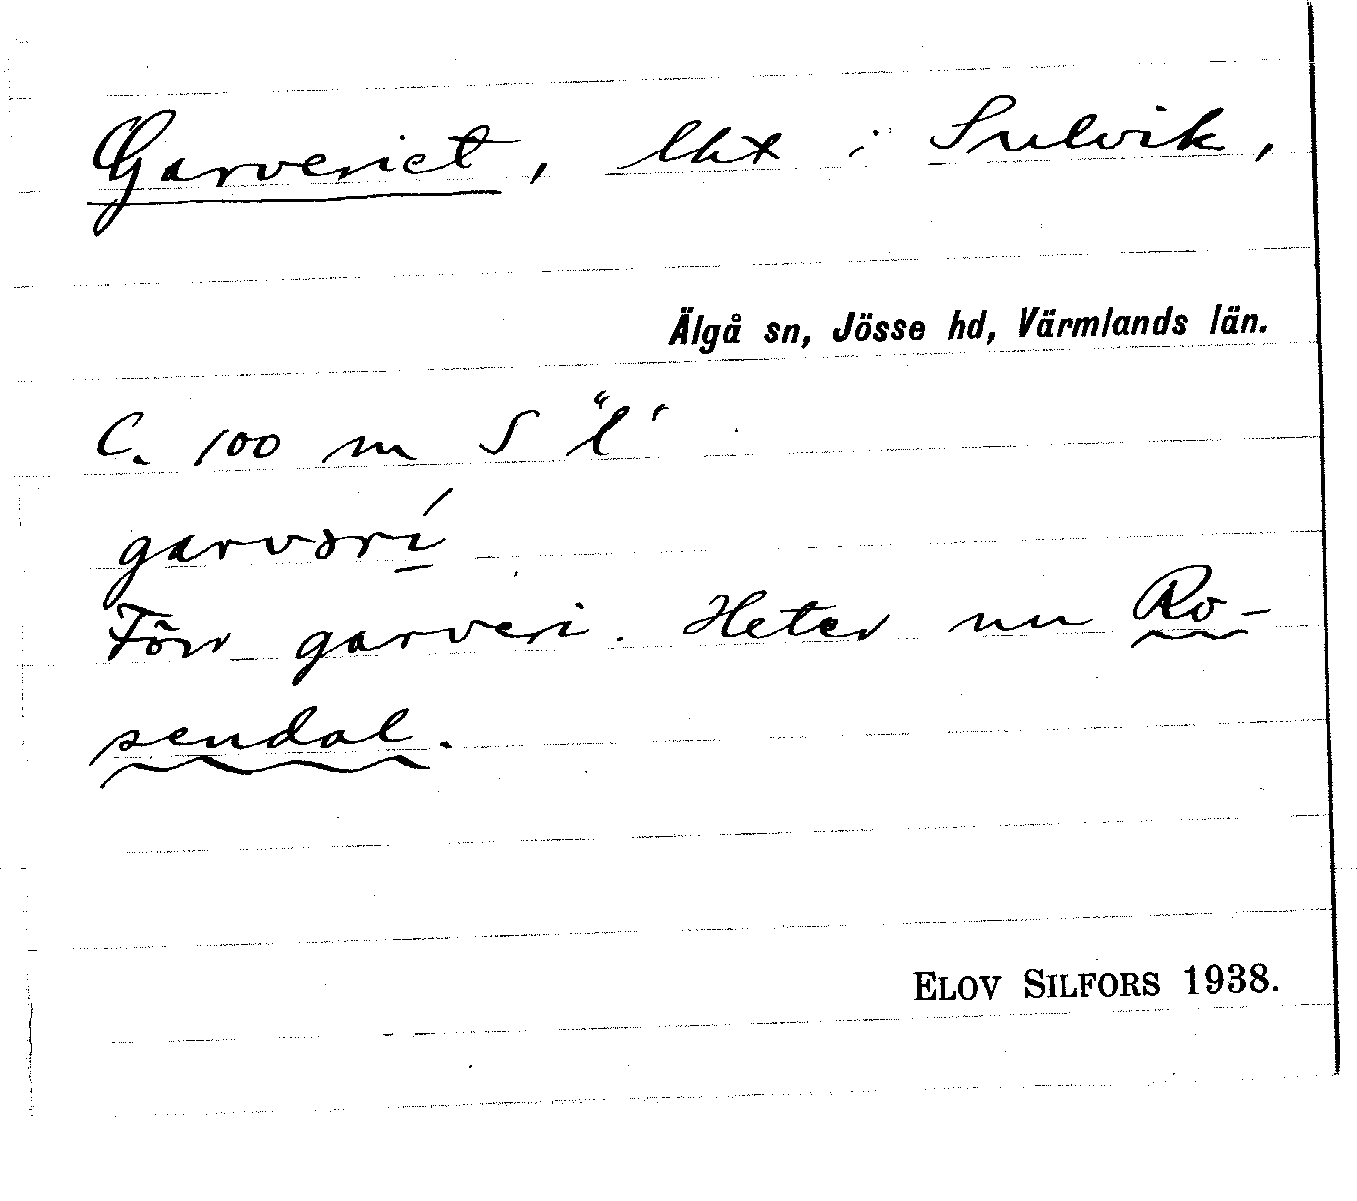 Garveriet, lht i Sulvik,
Älgå sn, Jösse hd, Värmlands län.
C. 100 m S "l"
garvərí
Förr garveri. Heter nu Ro-
sendal.
ELOV SILFORS 1938.